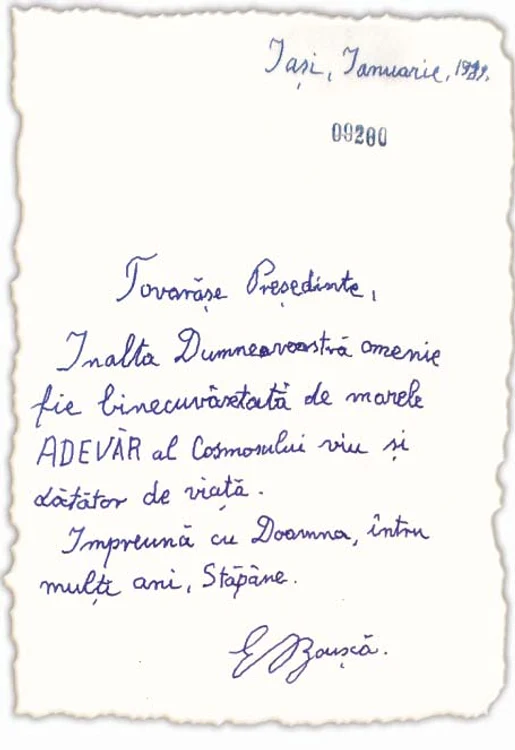 Iași, Ianuarie, 1989.
09200
Tovarășe Președinte,
Inalta Dumneavoastră omenie
fie binecuvântată de marele
ADEVĂR al Cosmosului viu și
dătător de viață.
Impreună cu Doamna, întru
mulți ani, Stăpâne.